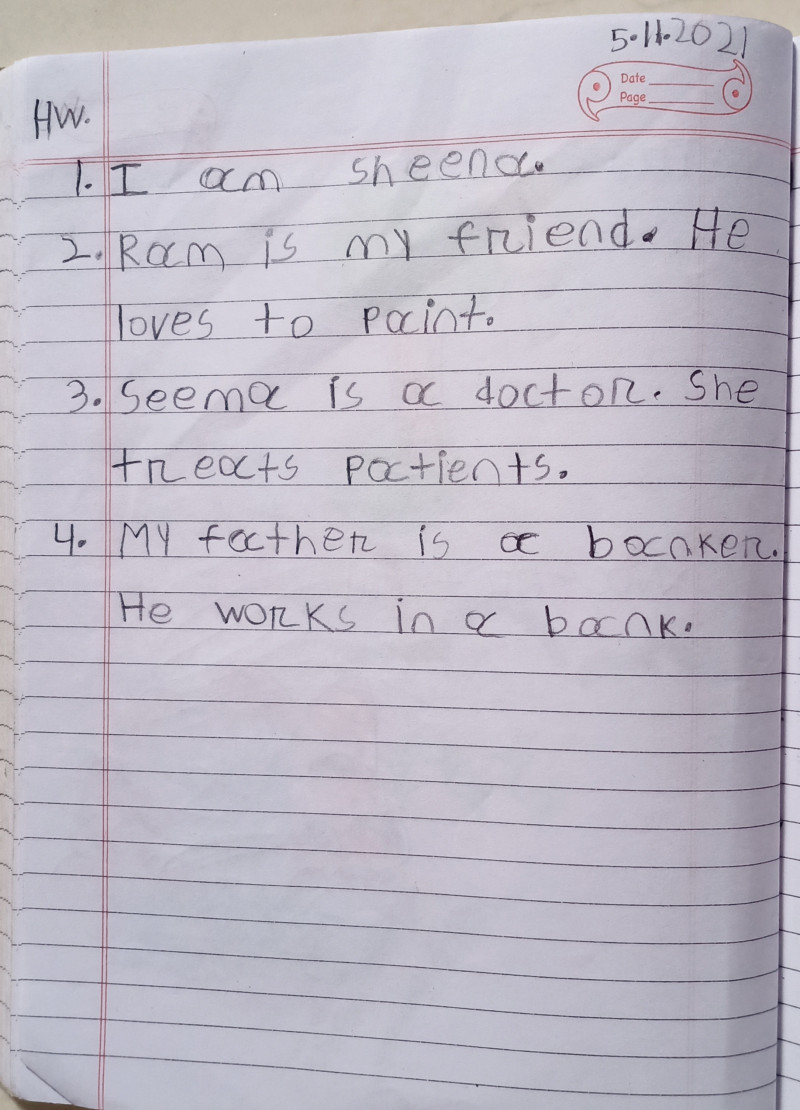 5.11.2021
Date
Page
HW.
1. I am sheena.
2. Ram is my friend. He
loves to paint.
3. Seema is a doctor. She
treats patients.
4. My father is a banker.
He works in a bank.